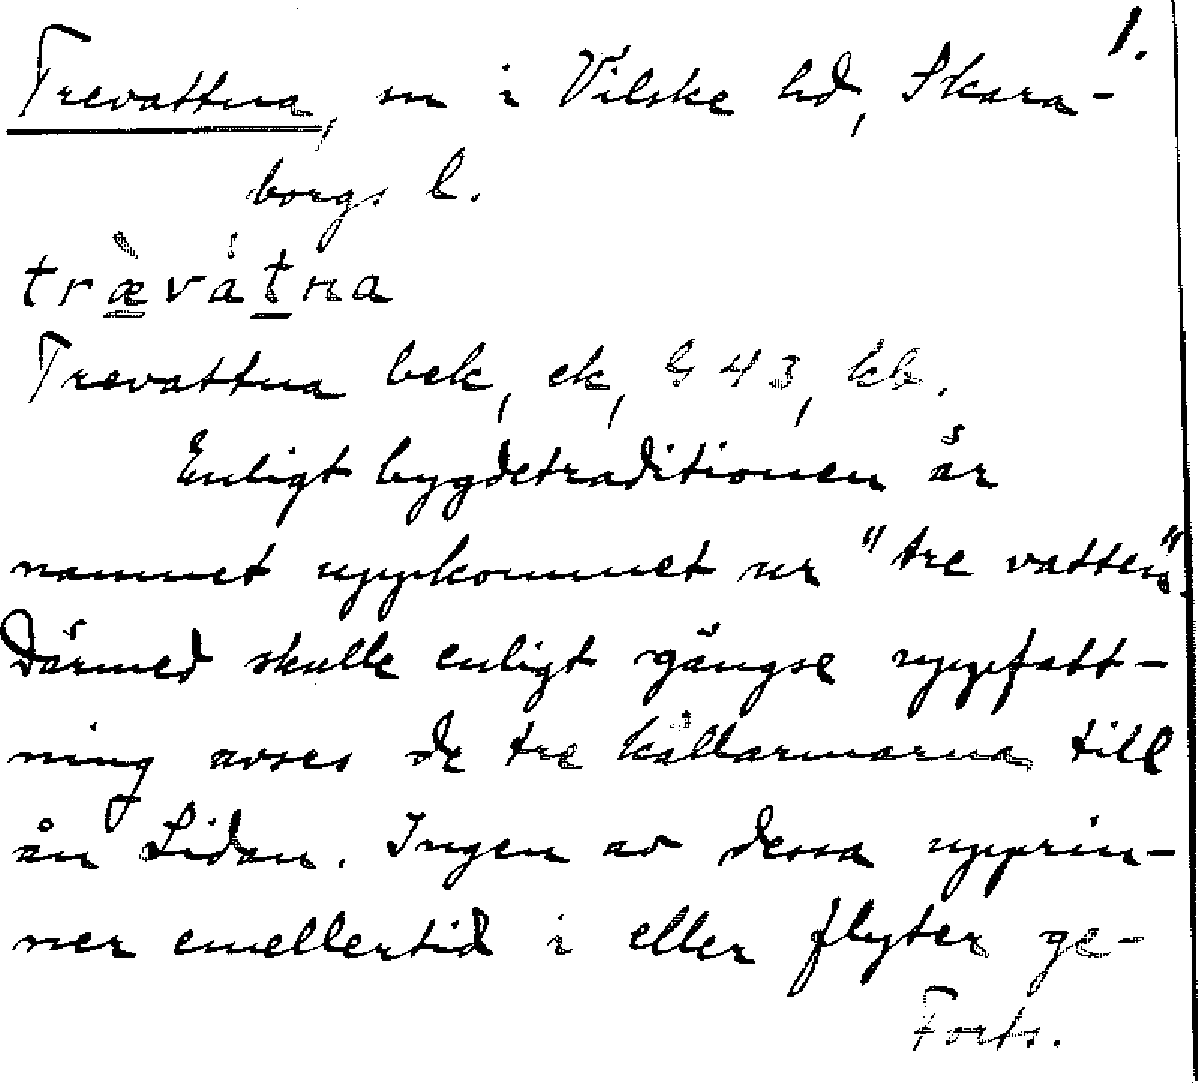 1.
Trevattna, sn i Vilske hd, Skara-
borgs l.
træ̀vátna
Trevattna bek, ek, G 43, kb.
Enligt bygdetraditionen är
namnet uppkommet ur "tre vatten".
Därmed skulle enligt gängse uppfatt-
ning avses de tre källarmarna till
ån Lidan. Ingen av dessa upprin-
ner emellertid i eller flyter ge-
Forts.